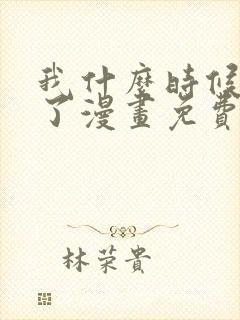 我什麼時候
了漫畫免費
林荣貴